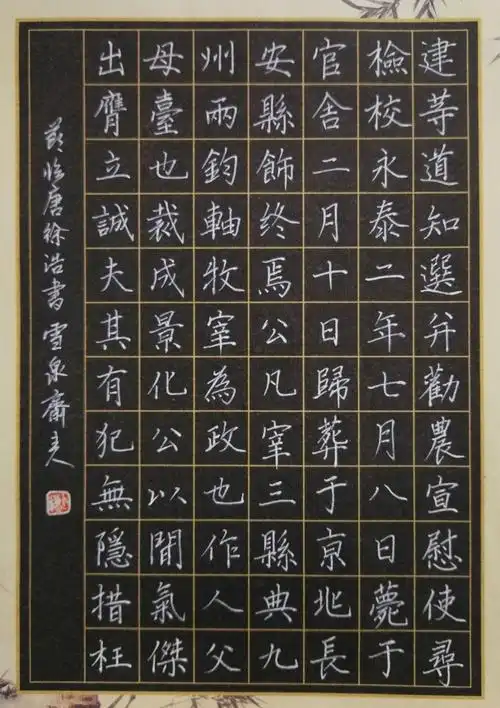 建䒭道知選并勸農宣慰使尋
檢校永泰二年七月八日薨于
官舍二月十日歸葬于京兆長
安縣飾終焉公凡宰三縣典九
州兩鈞軸牧宰為政也作人父
母臺也裁成景化公以閒氣傑
出膺立誠夫其有犯無隱措枉
節臨唐徐浩書雪泉齋主人